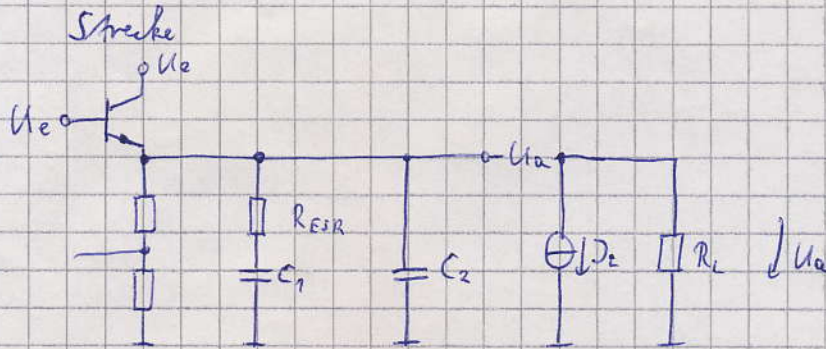 Strecke
Ue
Ua
RESR
C1
C2
RL
Ua